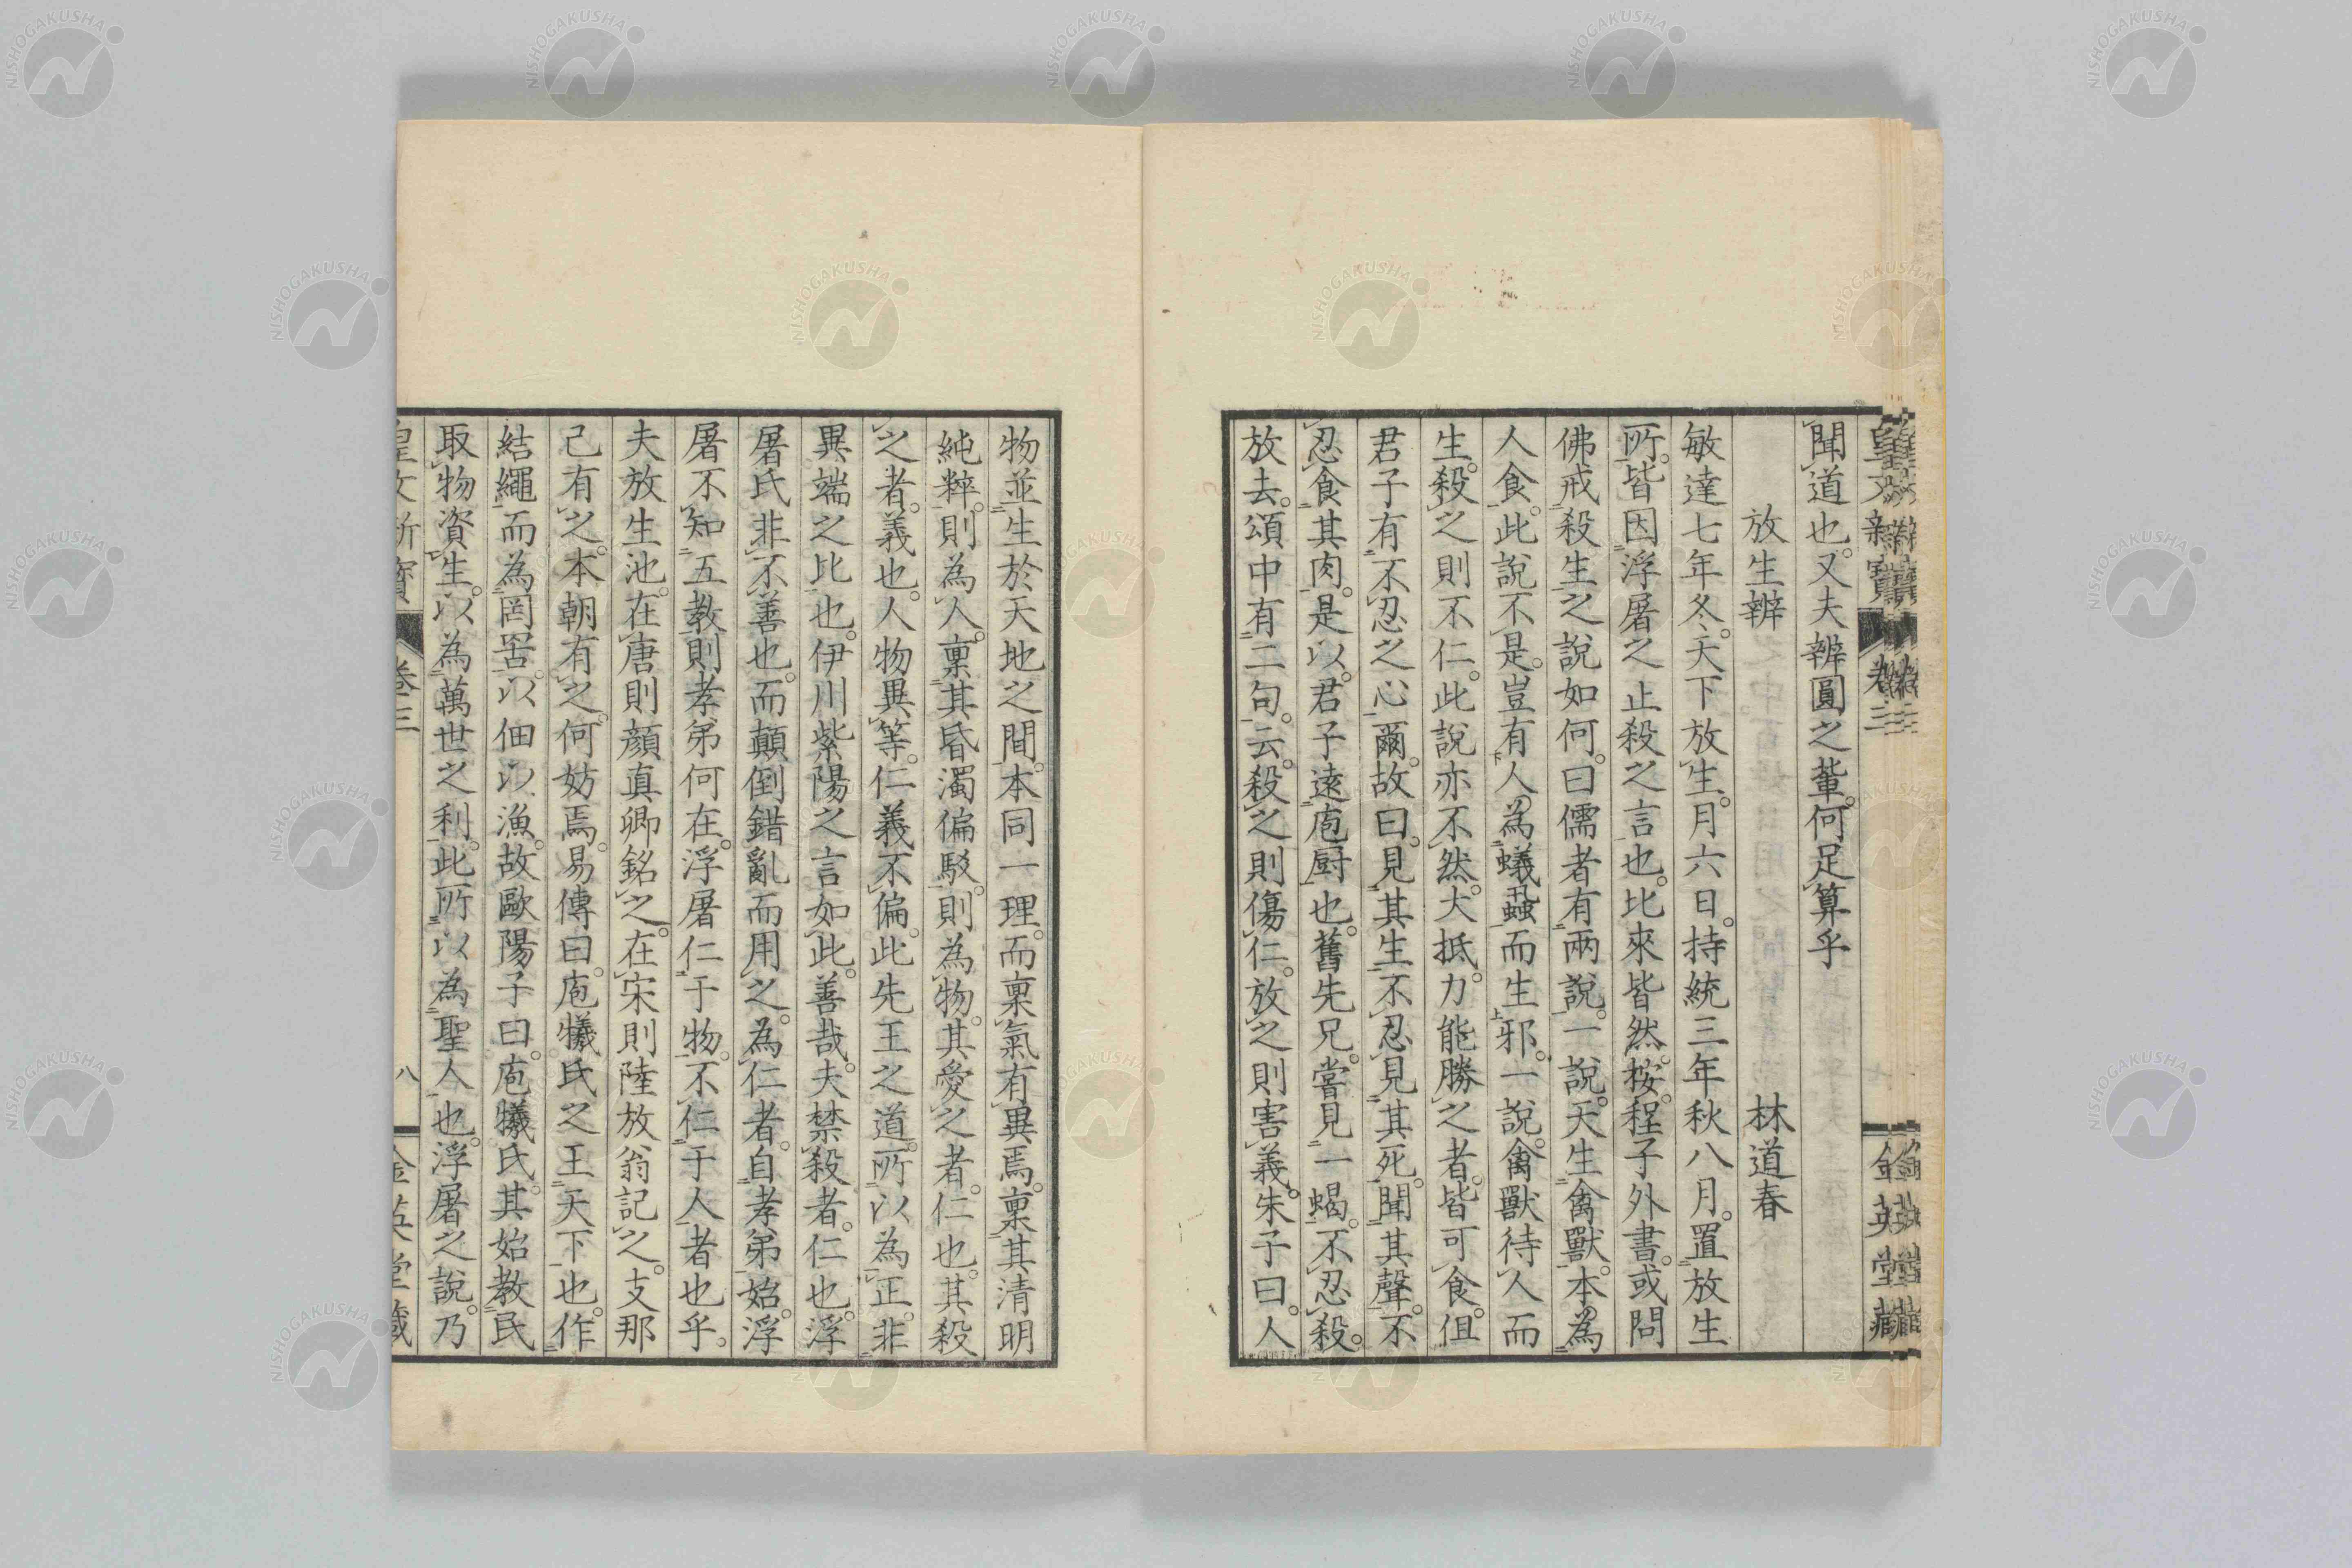 聞道也。又夫辨圓之輩。何足算乎
放生辨 林道春
敏達七年冬。天下放生。月六日。持統三年秋八月。置放生
所。皆因浮屠之止殺之言也。比來皆然。按。程子外書。或問
佛戒殺生之說如何。曰儒者有兩說。一說。天生禽獸。本為
人食。此說不是。豈有人為蟻蝨而生邪。一說。禽獸待人而
生。殺之則不仁。此說亦不然。大抵力能勝之者。皆可食。但
君子有不忍之心爾。故曰。見其生不忍見其死。聞其聲。不
忍食其肉。是以。君子遠庖厨也。舊先兄。嘗見一蝎。不忍殺。
放去。頌中有二句。云。殺之則傷仁。放之則害義。朱子曰。人
物並生於天地之間。本同一理。而稟氣有異焉。稟其清明
純粹。則為人。稟其昏濁偏駁。則為物。其愛之者。仁也。其殺
之者。義也。人物異等。仁義不偏。此先王之道。所以為正。非
異端之比也。伊川紫陽之言如此。善哉。夫禁殺者。仁也。浮
屠氏非不善也。而顛倒錯亂而用之。為仁者。自孝弟始。浮
屠不知五教。則孝弟何在。浮屠仁于物。不仁于人者也乎。
夫放生池。在唐則顔真卿銘之。在宋則陸放翁記之。支那
己有之。本朝有之。何妨焉。易傳曰。庖犧氏之王天下也。作
結繩而為罔罟。以佃以漁。故歐陽子曰。庖犧氏。其始教民
取物資生。以為萬世之利。此所以為聖人也。浮屠之說。乃
皇文新寶 卷三 八 金英堂藏